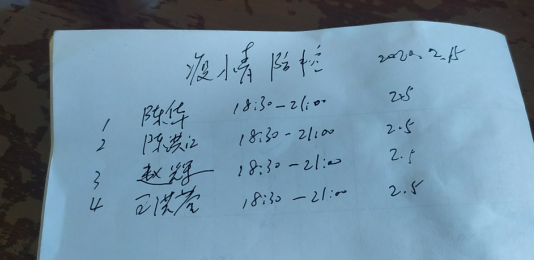 疫情防控 2020.2.15
1 陈华 18:30-21:00 2.5
2 陈洪江 18:30-21:00 2.5
3 赵辉 18:30-21:00 2.5
4 王洪莹 18:30-21:00 2.5